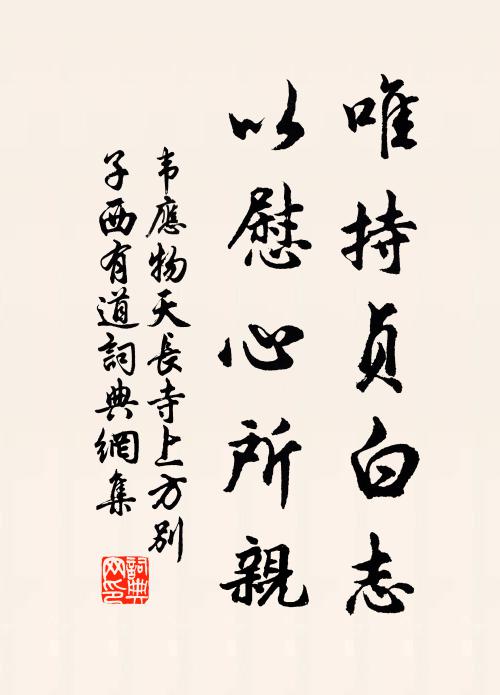 唯持貞白志
以慰心所親
韦應物天長寺上方別
子西有道詞典網集
詞典网印